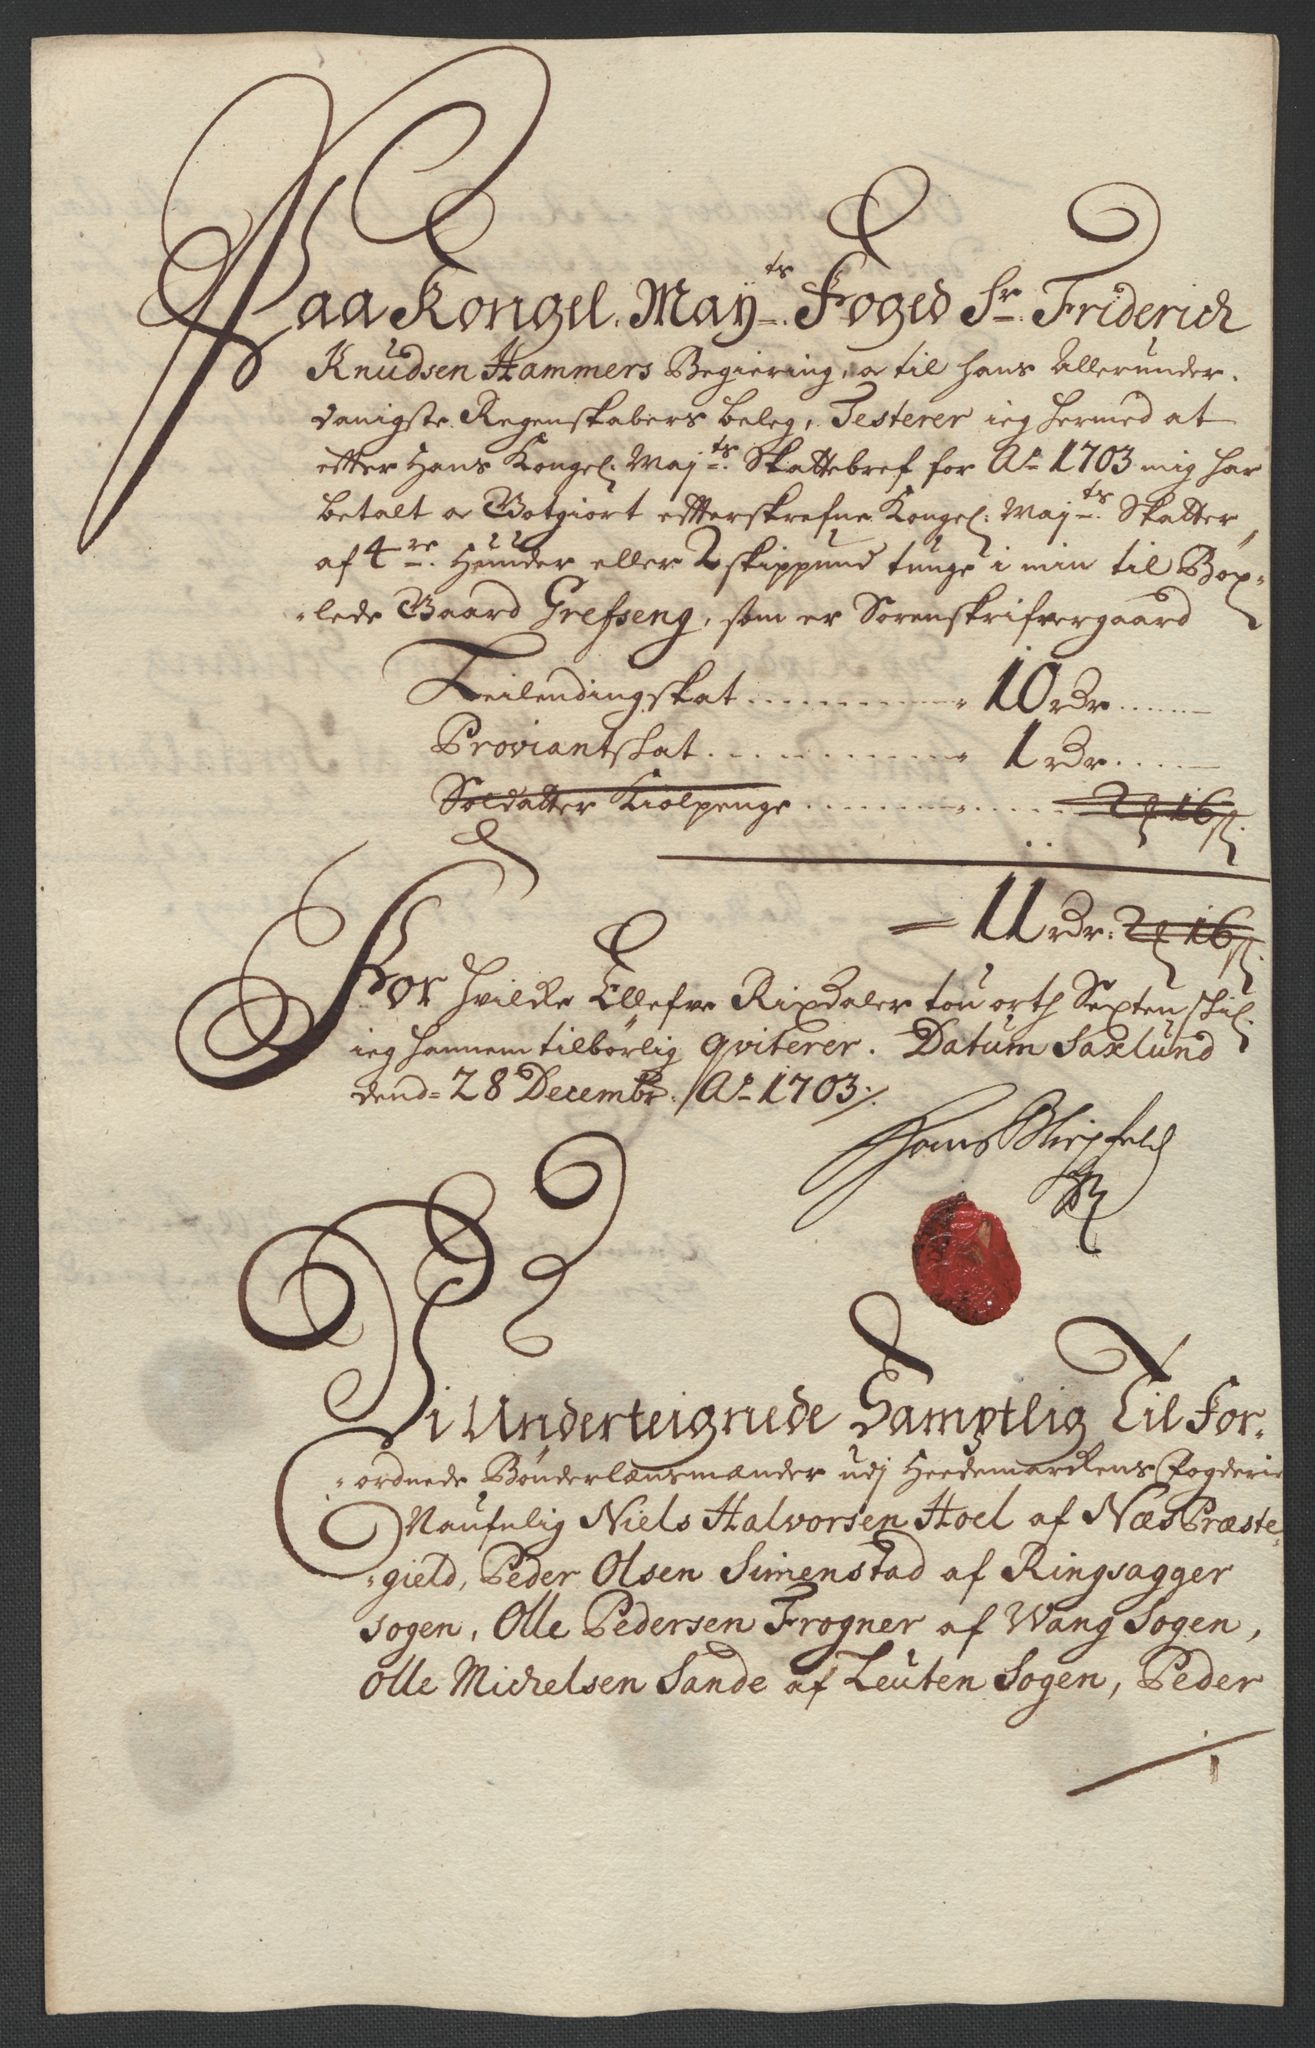 Paa Kongel. May.ts Foged Sr. Friderich
Knudsen Hammers Begiering, o til hans Allerunder-
danigste Regenskabers beleg, Testerer ieg hermed at
efter Hans Kongel: Maj.ts Skattebref for Ao 1703 mig har
betalt o Gotgiort effterskrefne Kongel: Maj.ts Skatter
af 4re Hünder eller 2 skippund tunge i min til
lede Gaard Grefseng, som er Sorenskrifvergaard
Leilendingskat .......... 10 rdr ......
Proviantskat .......... 1 rdr ......
Soldatter Kiolpenge .......... 2 16
11 rdr: 2 16
For hvilcke Ellefve Rixdaler tou orth Sexten skil.
ieg hannem tilbørlig qviterer. Datum Saxlund
dend 28 Decembr. Ao 1703 ./.
Hans
Vi Underteignede Samptlig Til For-
ordnede Bønderlænsmænder udj Heedemarckens Fogderie
Naufnlig Niels Halvorsen Hoel af Næs Præste-
gield, Peder Olsen Simenstad af Ringsagger
sogen, Olle Pedersen Frogner af Wang Sogen,
Olle Michelsen Sande af Leuten Sogen, Peder